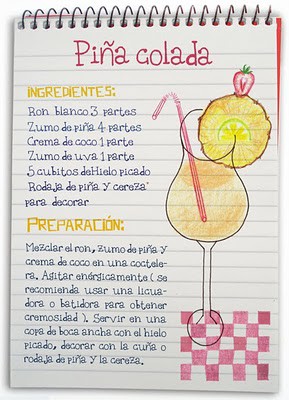 Piña colada
INGREDIENTES:
Ron blanco 3 partes
Zumo de piña 4 partes
Crema de coco 1 parte
Zumo de uva 1 parte
5 cubitos de Hielo picado
Rodaja de piña y cereza
para decorar
PREPARACIÓN:
Mezclar el ron, zumo de piña y
crema de coco en una coctele-
ra. Agitar enérgicamente ( se
recomienda usar una licua-
dora o batidora para obtener
cremosidad ). Servir en una
copa de boca ancha con el hielo
picado, decorar con la cuña o
rodaja de piña y la cereza.